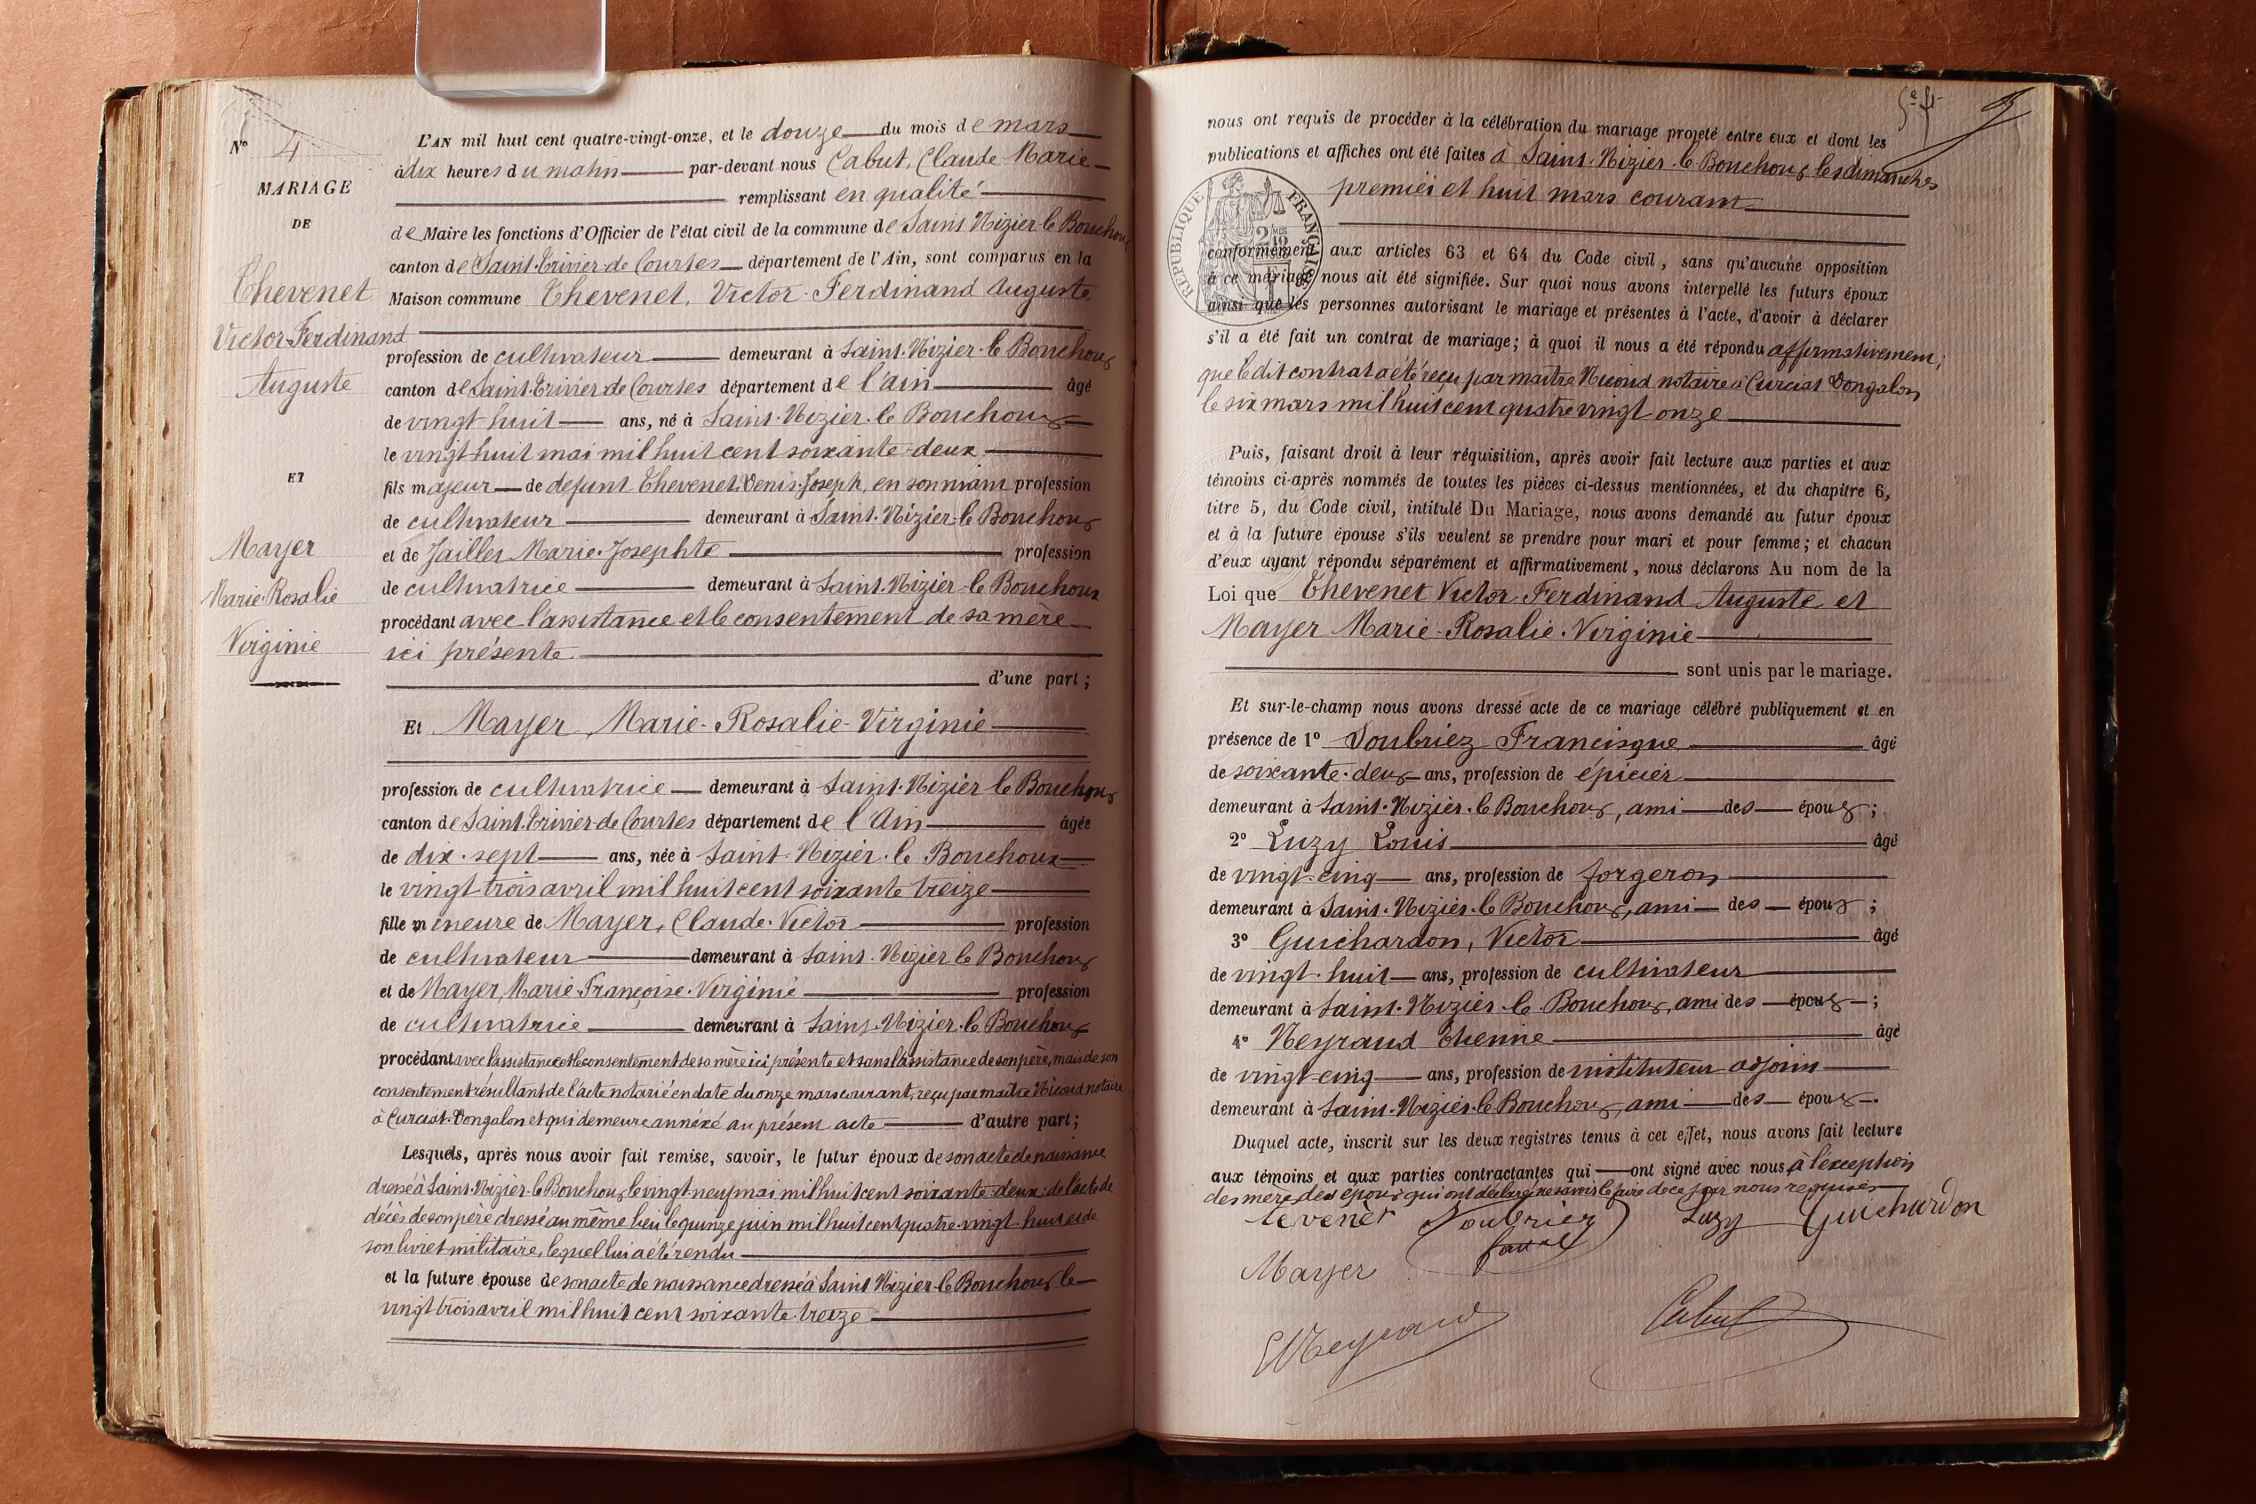 N° 4
MARIAGE
DE
Thevenet
Victor-Ferdinand
Auguste
ET
Mayer
Marie-Rosalie
Virginie
L'AN mil huit cent quatre-vingt-onze, et le douze du mois de mars
à dix heures du matin par-devant nous Cabut, Claude Marie
remplissant en qualité
de Maire les fonctions d'Officier de l'état civil de la commune de Saint Nizier-le Bouchoux
canton de Saint-Trivier-de Courtes département de l'Ain, sont comparus en la
Maison commune Thevenet, Victor-Ferdinand Auguste
profession de cultivateur demeurant à Saint-Nizier-le Bouchoux
canton de Saint-Trivier de Courtes département de l'Ain âgé
de vingt-huit ans, né à Saint-Nizier-le Bouchoux
le vingt-huit mai mil huit cent soixante-deux
fils majeur de defunt Thevenet, Denis-Joseph, en son vivant profession
de cultivateur demeurant à Saint-Nizier-le Bouchoux
et de Jailler Marie-Josephte profession
de cultivatrice demeurant à Saint-Nizier-le Bouchoux
procédant avec l'assistance et le consentement de sa mère
ici présente
d'une part ;
Et Mayer Marie-Rosalie-Virginie
profession de cultivatrice demeurant à Saint-Nizier le Bouchoux
canton de Saint-Trivier-de Courtes département de l'Ain âgée
de dix-sept ans, née à Saint-Nizier-le Bouchoux
le vingt-trois avril mil huit cent soixante treize
fille mineure de Mayer, Claude-Victor profession
de cultivateur demeurant à Saint-Nizier le Bouchoux
et de Mayer, Marie-Françoise-Virginie profession
de cultivatrice demeurant à Saint-Nizier-le Bouchoux
procédant avec l'assistance et le consentement de sa mère ici présente et sans l'assistance de son père, mais de son
consentement résultant de l'acte notarié en date du onze mars courant, reçu par maître Nicoud notaire
à Curciat-Dongalon et qui demeure annéxé au présent acte d'autre part ;
Lesquels, après nous avoir fait remise, savoir, le futur époux de son acte de naissance
dressé à Saint-Nizier-le Bouchoux, le vingt-neuf mai mil huit cent soixante-deux ; de l'acte de
décès de son père dressé au même lieu le quinze juin mil huit cent quatre-vingt-huit et de
son livret militaire, lequel lui a été rendu
et la future épouse de son acte de naissance dressé à Saint Nizier-le Bouchoux le
vingt trois avril mil huit cent soixante-treize
nous ont requis de procéder à la célébration du mariage projeté entre eux et dont les
publications et affiches ont été faites à Saint-Nizier-le-Bouchoux les dimanches
premier et huit mars courant
RÉPUBLIQUE FRANÇAISE
conformément aux articles 63 et 64 du Code civil, sans qu'aucune opposition
à ce mariage nous ait été signifiée. Sur quoi nous avons interpellé les futurs époux
ainsi que les personnes autorisant le mariage et présentes à l'acte, d'avoir à déclarer
s'il a été fait un contrat de mariage ; à quoi il nous a été répondu affirmativement ;
que le dit contrat a été reçu par maître Nicoud notaire à Curciat Dongalon
le six mars mil huit cent quatre vingt onze
Puis, faisant droit à leur réquisition, après avoir fait lecture aux parties et aux
témoins ci-après nommés de toutes les pièces ci-dessus mentionnées, et du chapitre 6,
titre 5, du Code civil, intitulé Du Mariage, nous avons demandé au futur époux
et à la future épouse s'ils veulent se prendre pour mari et pour femme ; et chacun
d'eux ayant répondu séparément et affirmativement, nous déclarons Au nom de la
Loi que Thevenet Victor-Ferdinand Auguste et
Mayer Marie-Rosalie-Virginie
sont unis par le mariage.
Et sur-le-champ nous avons dressé acte de ce mariage célébré publiquement et en
présence de 1° Doubriez Francisque âgé
de soixante-deux ans, profession de épicier
demeurant à Saint-Nizier-le Bouchoux, ami des époux ;
2° Luzy Louis âgé
de vingt-cinq ans, profession de forgeron
demeurant à Saint-Nizier-le Bouchoux, ami des époux ;
3° Guichardon, Victor âgé
de vingt-huit ans, profession de cultivateur
demeurant à Saint-Nizier-le Bouchoux, ami des époux ;
4° Neyraud Etienne âgé
de vingt-cinq ans, profession de instituteur adjoint
demeurant à Saint-Nizier-le Bouchoux, ami des époux.
Duquel acte, inscrit sur les deux registres tenus à cet effet, nous avons fait lecture
aux témoins et aux parties contractantes qui ont signé avec nous, à l'exception
des mère des époux qui ont déclaré ne savoir le faire de ce par nous requises
tevenèt Doubriez Luzy Guichardon
Mayer
E Neyraud Cabut